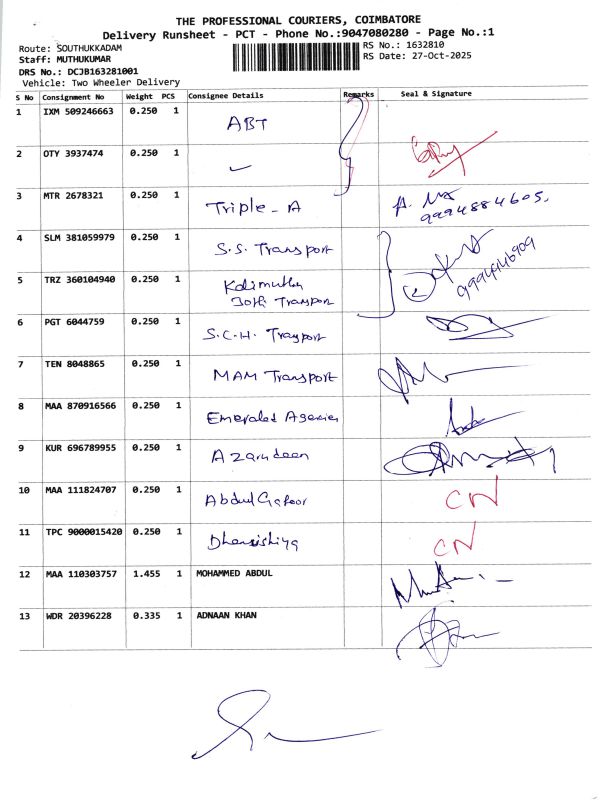 THE PROFESSIONAL COURIERS, COIMBATORE
Delivery Runsheet - PCT - Phone No.:9047080280 - Page No.:1
Route: SOUTHUKKADAM
RS No.: 1632810
Staff: MUTHUKUMAR
RS Date: 27-Oct-2025
DRS No.: DCJB163281001
Vehicle: Two Wheeler Delivery
S No Consignment No Weight PCS Consignee Details Remarks Seal & Signature
1 IXM 509246663 0.250 1 ABT
2 OTY 3937474 0.250 1
3 MTR 2678321 0.250 1 Triple-A 9994884605.
4 SLM 381059979 0.250 1 S.S. Transport
5 TRZ 360104940 0.250 1 Kalimuthu
Transport
6 PGT 6044759 0.250 1 S.C.H. Trayport
7 TEN 8048865 0.250 1 MAM Transport
8 MAA 870916566 0.250 1 Emerald Agencies
9 KUR 696789955 0.250 1 Azarudeen
10 MAA 111824707 0.250 1 Abdul Gafoor CN
11 TPC 9000015420 0.250 1 CN
12 MAA 110303757 1.455 1 MOHAMMED ABDUL
13 WDR 20396228 0.335 1 ADNAAN KHAN